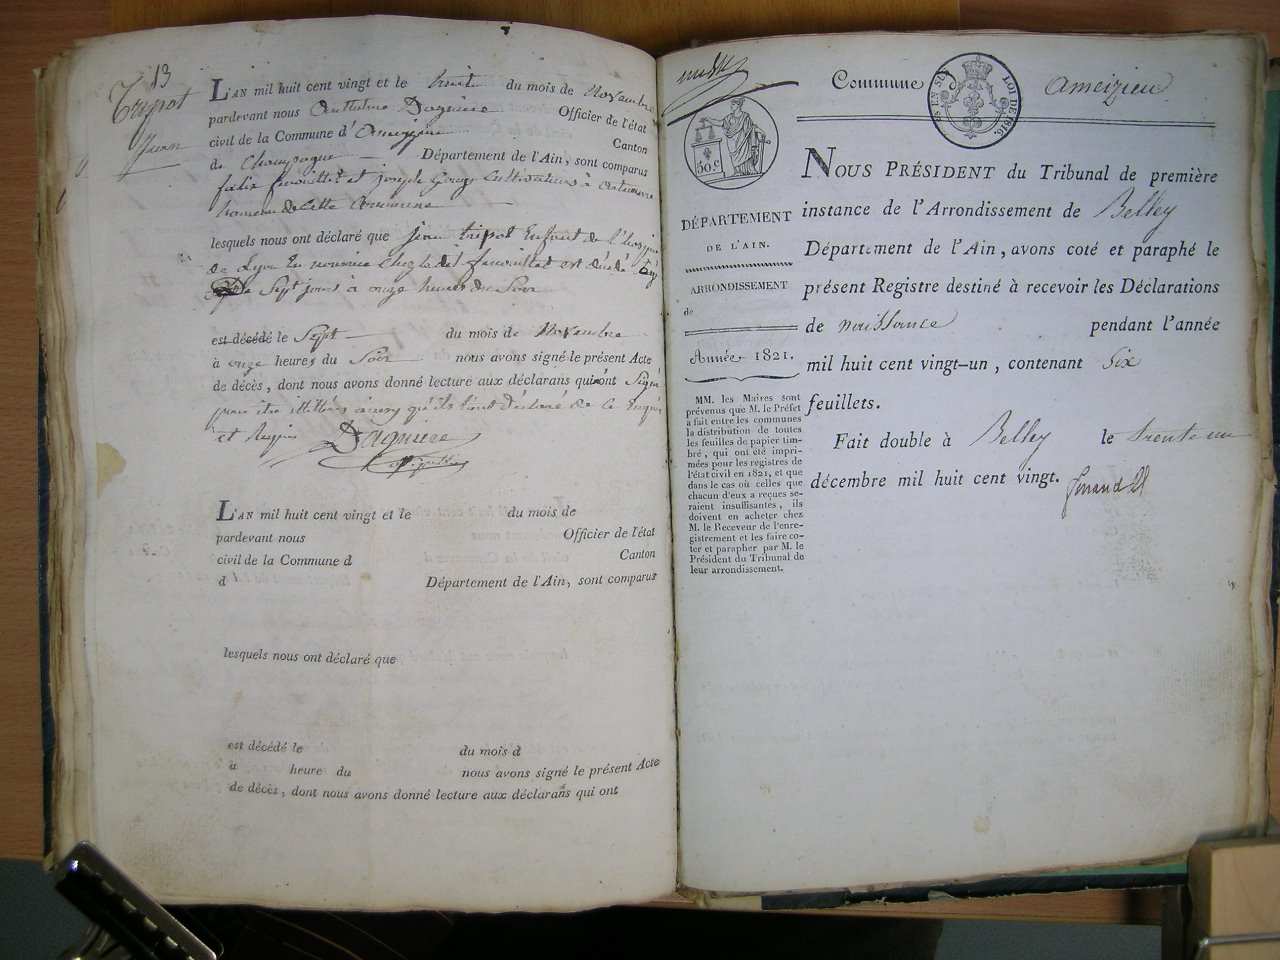 13
Tripot
Jean
L'AN mil huit cent vingt et le huit du mois de Novembre
pardevant nous Anthelme Dagniere Officier de l'état
civil de la Commune d'Ameizieu Canton
de Champagne Département de l'Ain, sont comparus
felix et joseph Cultivateurs à
hameau de Cette Commune
lesquels nous ont déclaré que jean tripot Enfant de l'hospice
de Lyon En nourrice Chez le dit est décédé
Sept jours à onze heures du Soir
est décédé le Sept du mois de Novembre
à onze heures du Soir nous avons signé le présent Acte
de décès, dont nous avons donné lecture aux déclarans qui n'ont Signé
pour être illitérés à ce qu'ils l'ont déclaré de ce Enquis
et Requis Dagniere
L'AN mil huit cent vingt et le du mois de
pardevant nous Officier de l'état
civil de la Commune d Canton
d Département de l'Ain, sont comparus
lesquels nous ont déclaré que
est décédé le du mois d
à heure du nous avons signé le présent Acte
de décès, dont nous avons donné lecture aux déclarans qui ont
Commune Ameizieu
LOI DE 1816.
50.c
DÉPARTEMENT
DE L'AIN.
ARRONDISSEMENT
de
Année 1821.
MM. les Maires sont
prévenus que M. le Préfet
a fait entre les communes
la distribution de toutes
les feuilles de papier tim-
bré, qui ont été impri-
mées pour les registres de
l'état civil en 1821, et que
dans le cas où celles que
chacun d'eux a reçues se-
raient insuffisantes, ils
doivent en acheter chez
M. le Receveur de l'enre-
gistrement et les faire co-
ter et parapher par M. le
Président du Tribunal de
leur arrondissement.
NOUS PRÉSIDENT du Tribunal de première
instance de l'Arrondissement de Belley
Département de l'Ain, avons coté et paraphé le
présent Registre destiné à recevoir les Déclarations
de naissance pendant l'année
mil huit cent vingt-un, contenant Six
feuillets.
Fait double à Belley le trente un
décembre mil huit cent vingt.